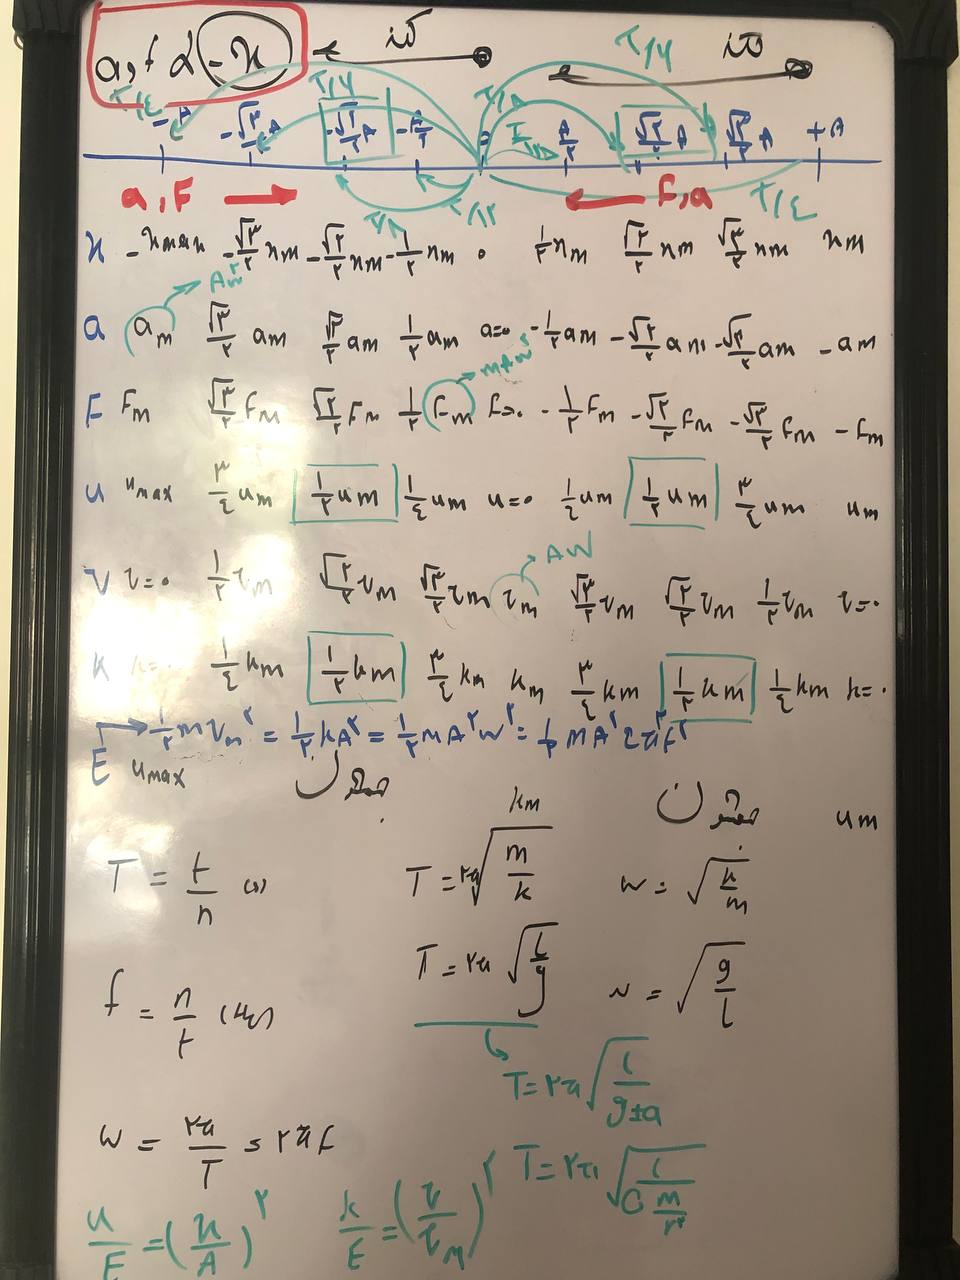 a, f α -x
T/4 T/6 T/8 T/6
-A -√۳/۲ A -√۲/۲ A -A/۲ 0 T/12 A/۲ √۲/۲ A √۳/۲ A +A
a, F → ← F, a
T/8 T/۱۲ T/٤
x -xmax -√۳/۲ xm -√۲/۲ xm -۱/۲ xm ۰ ۱/۲ xm √۲/۲ xm √۳/۲ xm xm
Aω۲
a am √۳/۲ am √۲/۲ am ۱/۲ am a=۰ -۱/۲ am -√۲/۲ am -√۳/۲ am -am
mAω۲
F Fm √۳/۲ Fm √۲/۲ Fm ۱/۲ Fm F=۰ -۱/۲ Fm -√۲/۲ Fm -√۳/۲ Fm -Fm
u umax ۳/٤ um ۱/۲ um ۱/٤ um u=۰ ۱/٤ um ۱/۲ um ۳/٤ um um
AW
V v=۰ ۱/۲ vm √۲/۲ vm √۳/۲ vm vm √۳/۲ vm √۲/۲ vm ۱/۲ vm v=۰
k k=۰ ۱/٤ km ۱/۲ km ۳/٤ km km ۳/٤ km ۱/۲ km ۱/٤ km k=۰
E → ۱/۲ m vm۲ = ۱/۲ kA۲ = ۱/۲ mA۲ω۲ = ۱/۲ mA۲
umax km um
T = t/n (s) T = ۲π√(m/k) ω = √(k/m)
f = n/t (Hz) T = ۲π√(l/g) ω = √(g/l)
T = ۲π√(l/(g±a))
ω = ۲π/T = ۲πf T = ۲π√(l/(G m/r۲))
u/E = (x/A)۲ k/E = (v/vm)۲